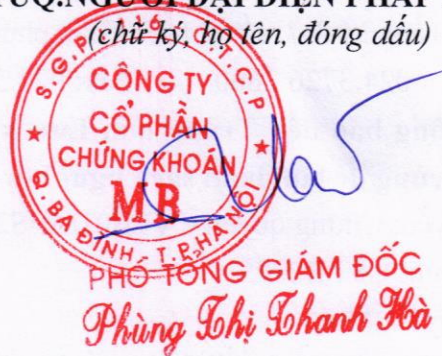 TUQ.NGƯỜI ĐẠI DIỆN PHÁP
(chữ ký, họ tên, đóng dấu)
CÔNG TY
CỔ PHẦN
CHỨNG KHOÁN
MB
Q. BA ĐÌNH - T.P HÀ NỘI
PHÓ TỔNG GIÁM ĐỐC
Phùng Thị Thanh Hà